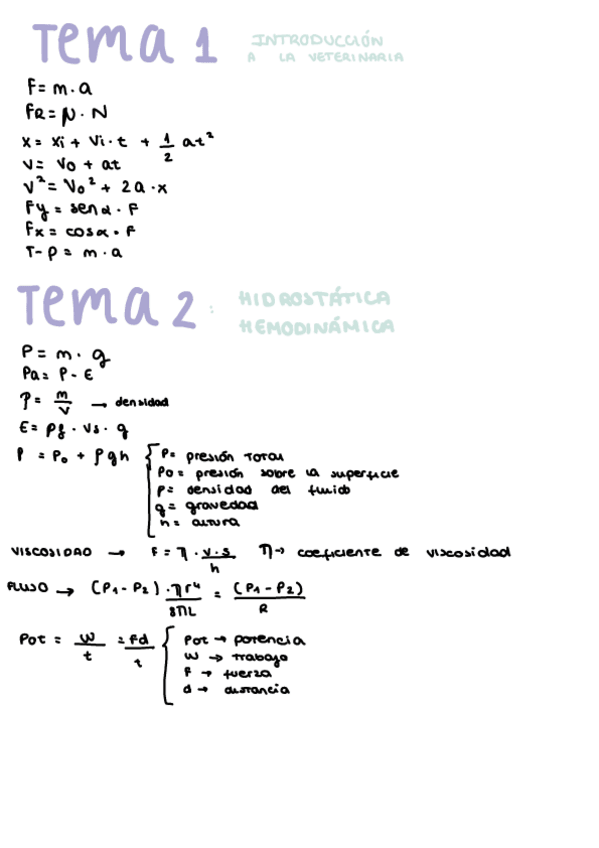 Tema 1 INTRODUCCIÓN
A LA VETERINARIA
F = m · a
FR = μ · N
x = xi + Vi · t + 1/2 at²
v = Vo + at
v² = Vo² + 2a · x
Fy = sen α · F
Fx = cos α · F
T - P = m · a
Tema 2 : HIDROSTÁTICA
HEMODINÁMICA
P = m · g
Pa = P - E
ρ = m/V → densidad
E = ρf · Vs · g
P = Po + ρgh
P = presión total
Po = presión sobre la superficie
ρ = densidad del fluido
g = gravedad
h = altura
VISCOSIDAD → F = η · v·s/h η → coeficiente de viscosidad
FLUJO → (P1 - P2) · ηr⁴/8πL = (P1 - P2)/R
Pot = W/t = Fd/t
Pot → potencia
W → trabajo
F → fuerza
d → distancia